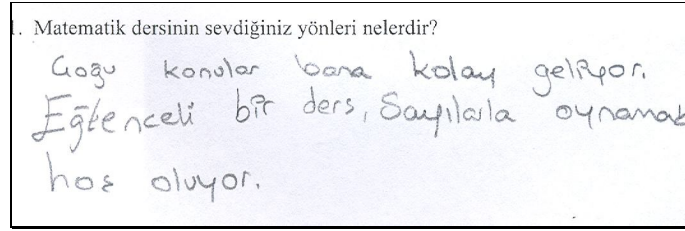 1. Matematik dersinin sevdiğiniz yönleri nelerdir?
Çoğu konular bana kolay geliyor.
Eğlenceli bir ders, Sayılarla oynamak
hoş oluyor.